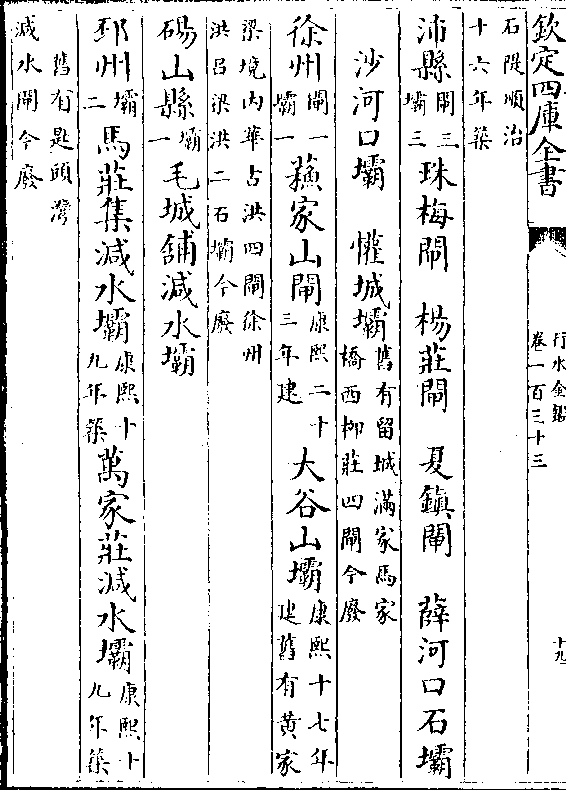 欽定四庫全書
行水金鑑
卷一百三十三
十九
石隄順治
十六年築
沛縣閘三壩三珠梅閘 楊莊閘 夏鎮閘 薛河口石壩
沙河口壩 㰌城壩舊有留城滿家馬家橋西柳莊四閘今廢
徐州閘一壩一蘓家山閘康熙二十三年建大谷山壩康熙十七年建舊有黄家
梁境内華占洪四閘徐州
洪吕梁洪二石壩今廢
碭山縣壩一毛城舖減水壩
邳州壩二馬莊集減水壩康熙十九年築萬家莊減水壩康熙十九年築
舊有匙頭灣
減水閘今廢